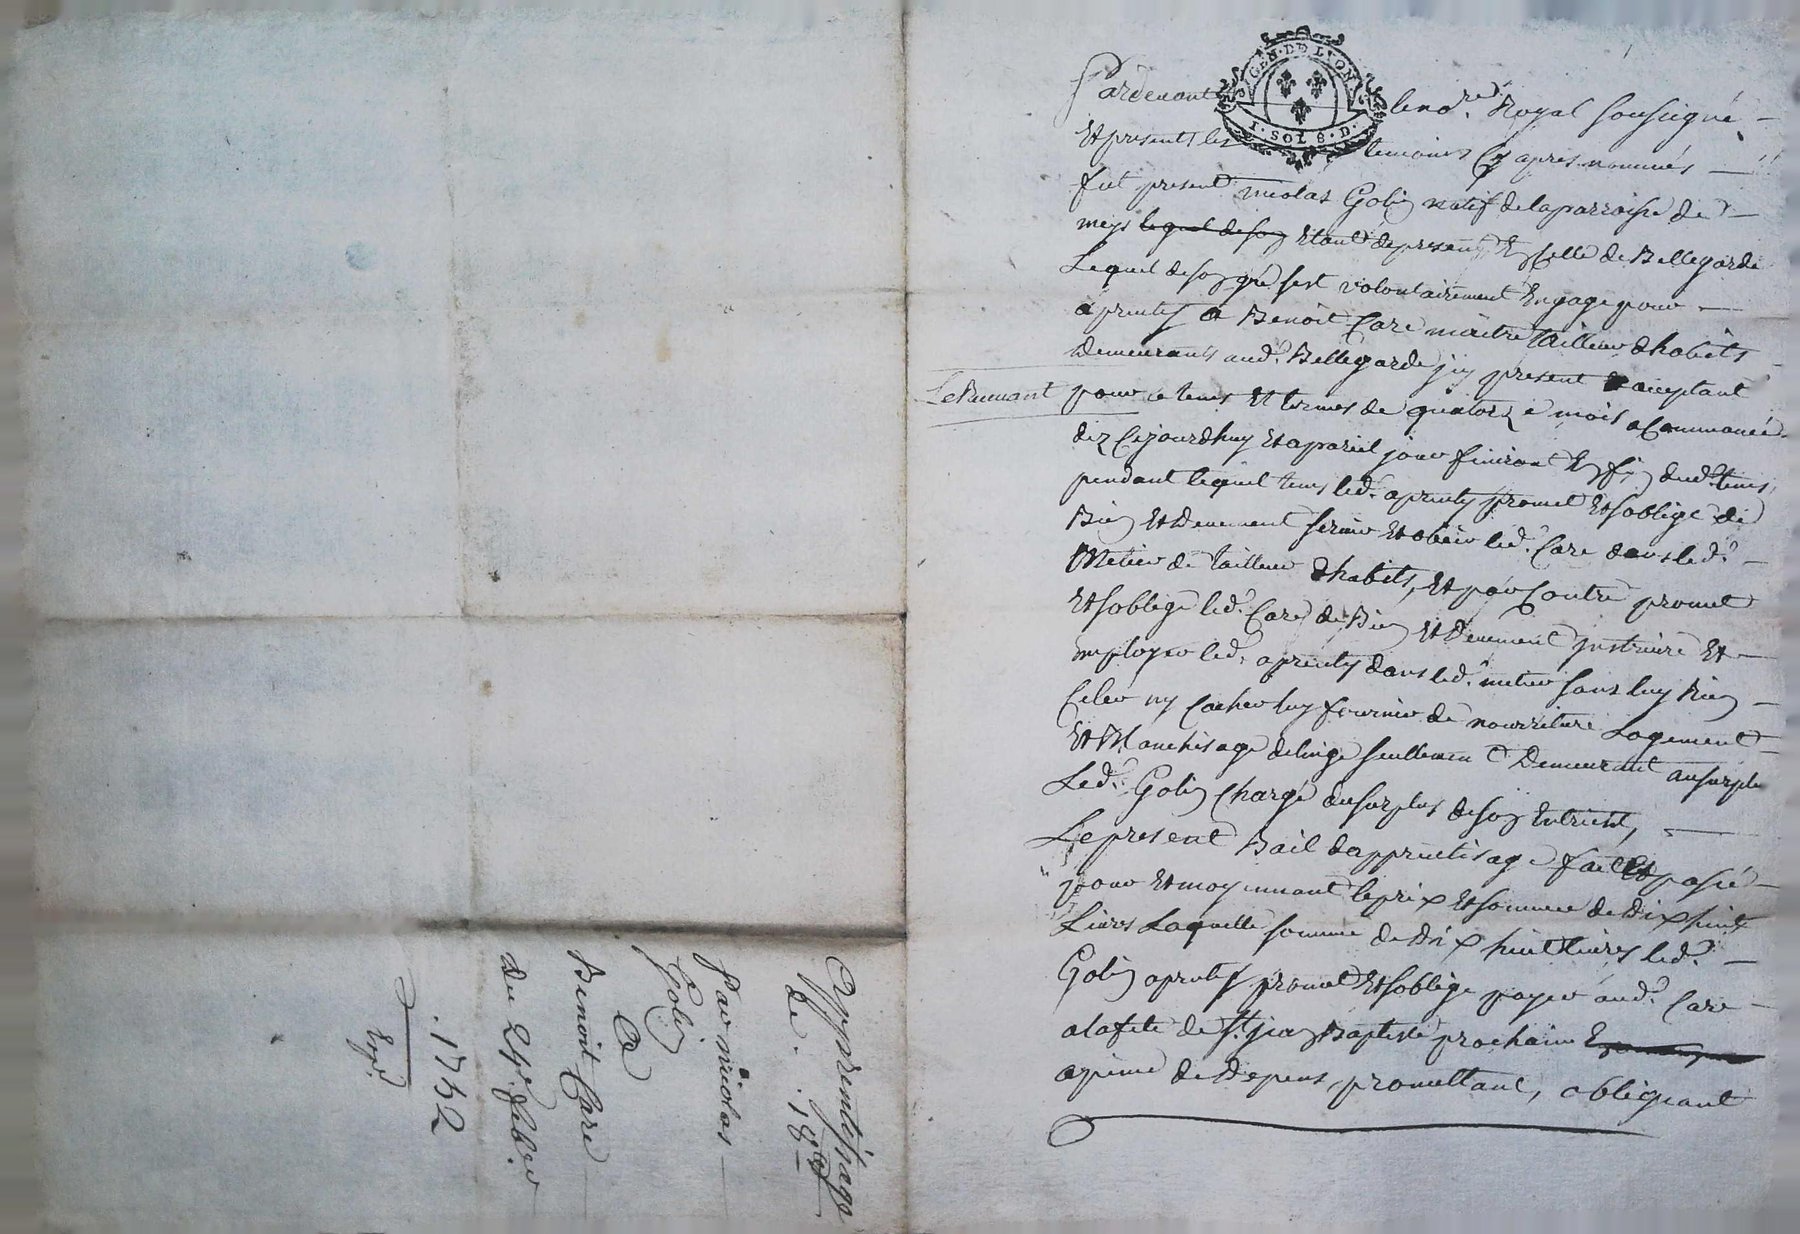 GEN. DE LYON
1. SOL 8. D.
Pardevant le no.re Royal soussigné
Et presents les temoins cy apres nommés
fut present nicolas Golin natif de la parroisse de
meys lequel de son Etant depresent En celle de Bellegarde
Lequel de son gré sest volontairement Engagé pour
aprentif a Benoit Care maitre tailleur dhabits
Demeurants aud.t Bellegarde jcy present Et aceptant
Le Suivant
pour le tems Et termes de quatorze mois a Commancé
dez Cejourdhuy Et apareil jour finiront En fin dud.t tems
pendant lequel tems led.t aprenty promet Et soblige de
Bien Et Deuement servir Et obéir led.t Care dans led.t
Metier de tailleur dhabits, Et par Contre promet
Et soblige led.t Care de Bien Et Deuement jnstruire Et
employer led.t aprenty dans led.t metier sans luy Rien
Celer ny Cacher luy fournir de nourriture Logement
Et Blanchisage de linge seullement Demeurant au surplus
Led.t Golin Chargé du surplus de son Entretient,
Le present Bail dapprentisage fait Et passé
pour Et moyennant le prix Et somme de Dix huit
Livres Laquelle somme de Dix huit livres led.t
Golin aprentif promet Et soblige payer aud.t Care
a la fete de St. jean Baptiste prochaine
a peine de Depens, promettant, obligeant
Apprentissage
de . 18 #
Par nicolas
Golin
a
Benoit Care
du 24e febver
. 1752
Expé